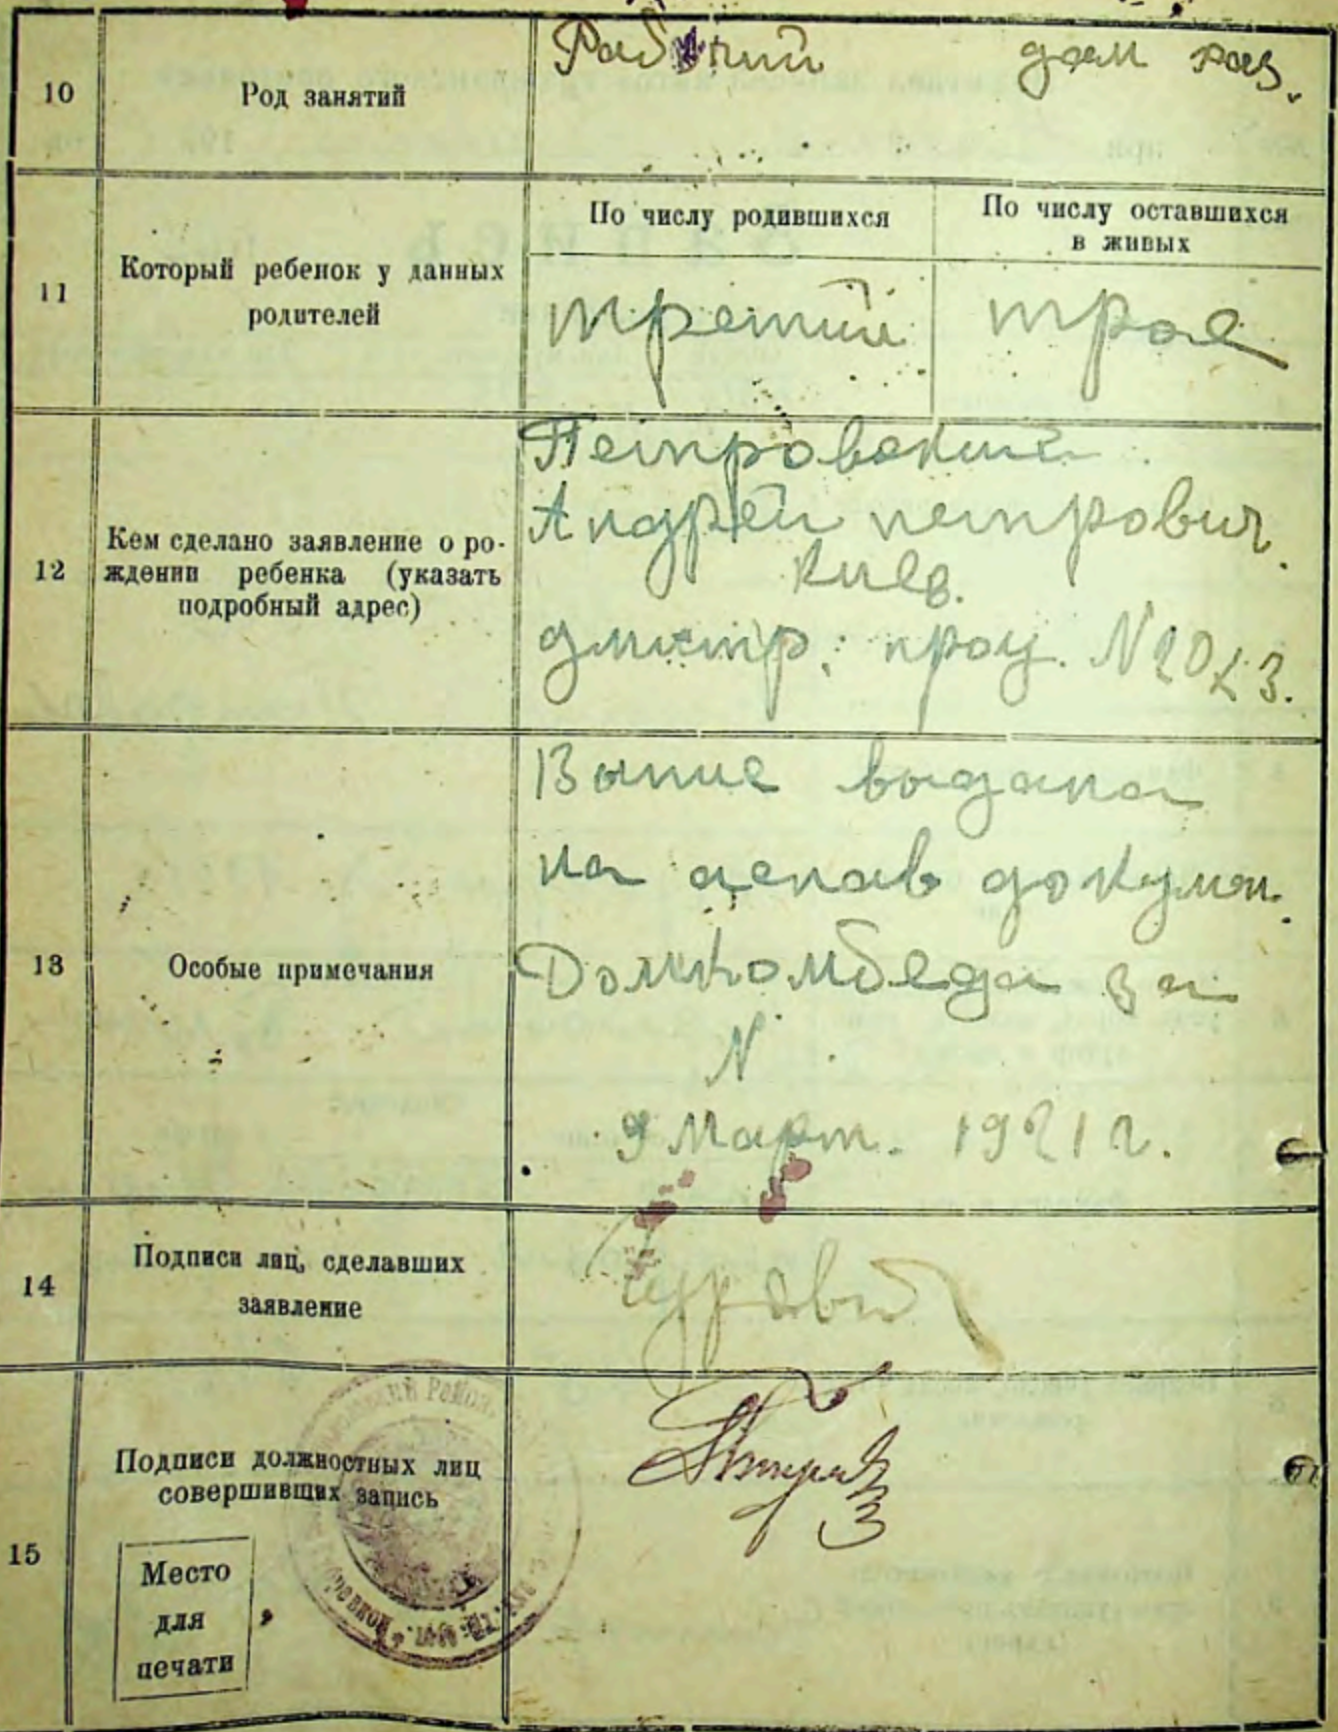 10
Род занятий
Рабочий
дом хоз.
11
Который ребенок у данных
родителей
По числу родившихся
По числу оставшихся
в живых
третий
трое
12
Кем сделано заявление о ро-
ждении ребенка (указать
подробный адрес)
Петровский
Андрей петрович.
Киев.
дмитр.
13
Особые примечания
Выпис выдана
на основ докумен.
Домкомбеда за
N
9 Март. 1921 г.
14
Подписи лиц, сделавших
заявление
15
Подписи должностных лиц
совершивших запись
Место
для
печати